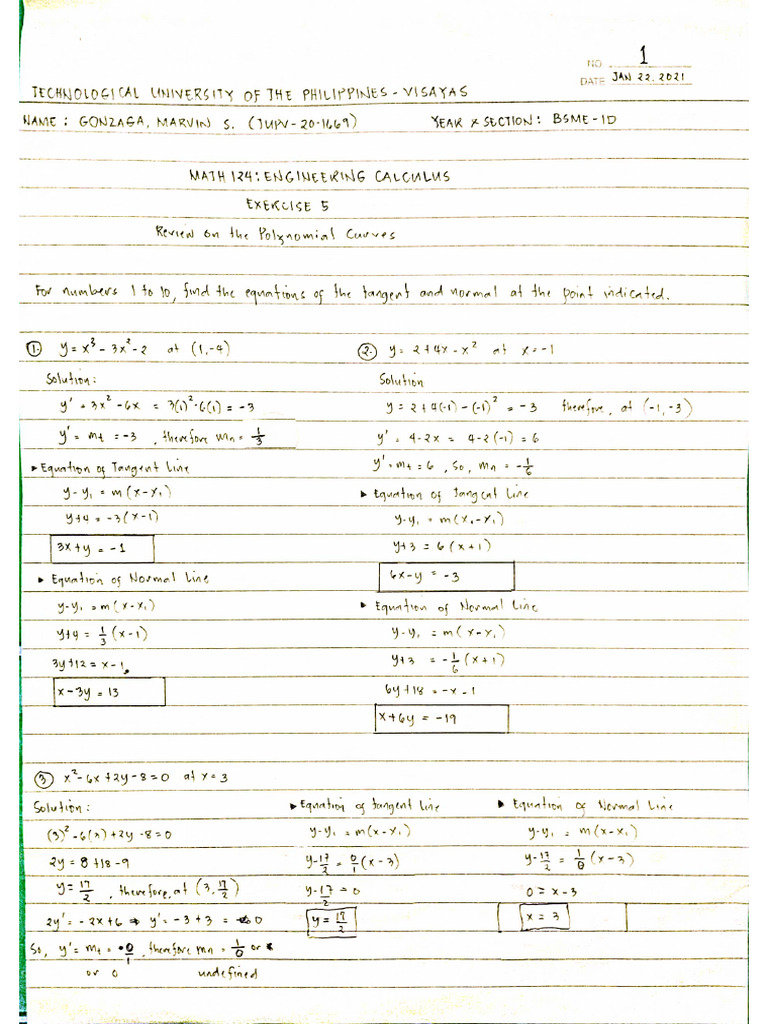 NO. 1
DATE JAN 22, 2021
TECHNOLOGICAL UNIVERSITY OF THE PHILIPPINES - VISAYAS
NAME: GONZAGA, MARVIN S. (TUPV-20-1669) YEAR & SECTION: BSME-1D
MATH 124: ENGINEERING CALCULUS
EXERCISE 5
Review on the Polynomial Curves
For numbers 1 to 10, find the equations of the tangent and normal at the point indicated.
1. y = x³ - 3x² - 2 at (1,-4)
Solution:
y' = 3x² - 6x = 3(1)² - 6(1) = -3
y' = mt = -3, therefore mn = 1/3
▸ Equation of Tangent Line
y-y₁ = m(x-x₁)
y+4 = -3(x-1)
3x+y = -1
▸ Equation of Normal Line
y-y₁ = m(x-x₁)
y+4 = 1/3 (x-1)
3y+12 = x-1
x-3y = 13
2. y = 2+4x-x² at x=-1
Solution
y = 2+4(-1)-(-1)² = -3 therefore, at (-1,-3)
y' = 4-2x = 4-2(-1) = 6
y' = mt = 6, so, mn = -1/6
▸ Equation of Tangent Line
y-y₁ = m(x₁-x₁)
y+3 = 6(x+1)
6x-y = -3
▸ Equation of Normal Line
y-y₁ = m(x-x₁)
y+3 = -1/6 (x+1)
6y+18 = -x-1
x+6y = -19
3. x²-6x+2y-8=0 at x=3
Solution:
(3)²-6(3)+2y-8=0
2y = 8+18-9
y = 17/2, therefore, at (3, 17/2)
2y' = -2x+6 → y' = -3+3 = 0
So, y' = mt = 0/1, therefore mn = 1/0 or
or 0 undefined
▸ Equation of tangent line
y-y₁ = m(x-x₁)
y-17/2 = 0/1 (x-3)
y-17/2 = 0
y = 17/2
▸ Equation of Normal Line
y-y₁ = m(x-x₁)
y-17/2 = 1/0 (x-3)
0 = x-3
x = 3